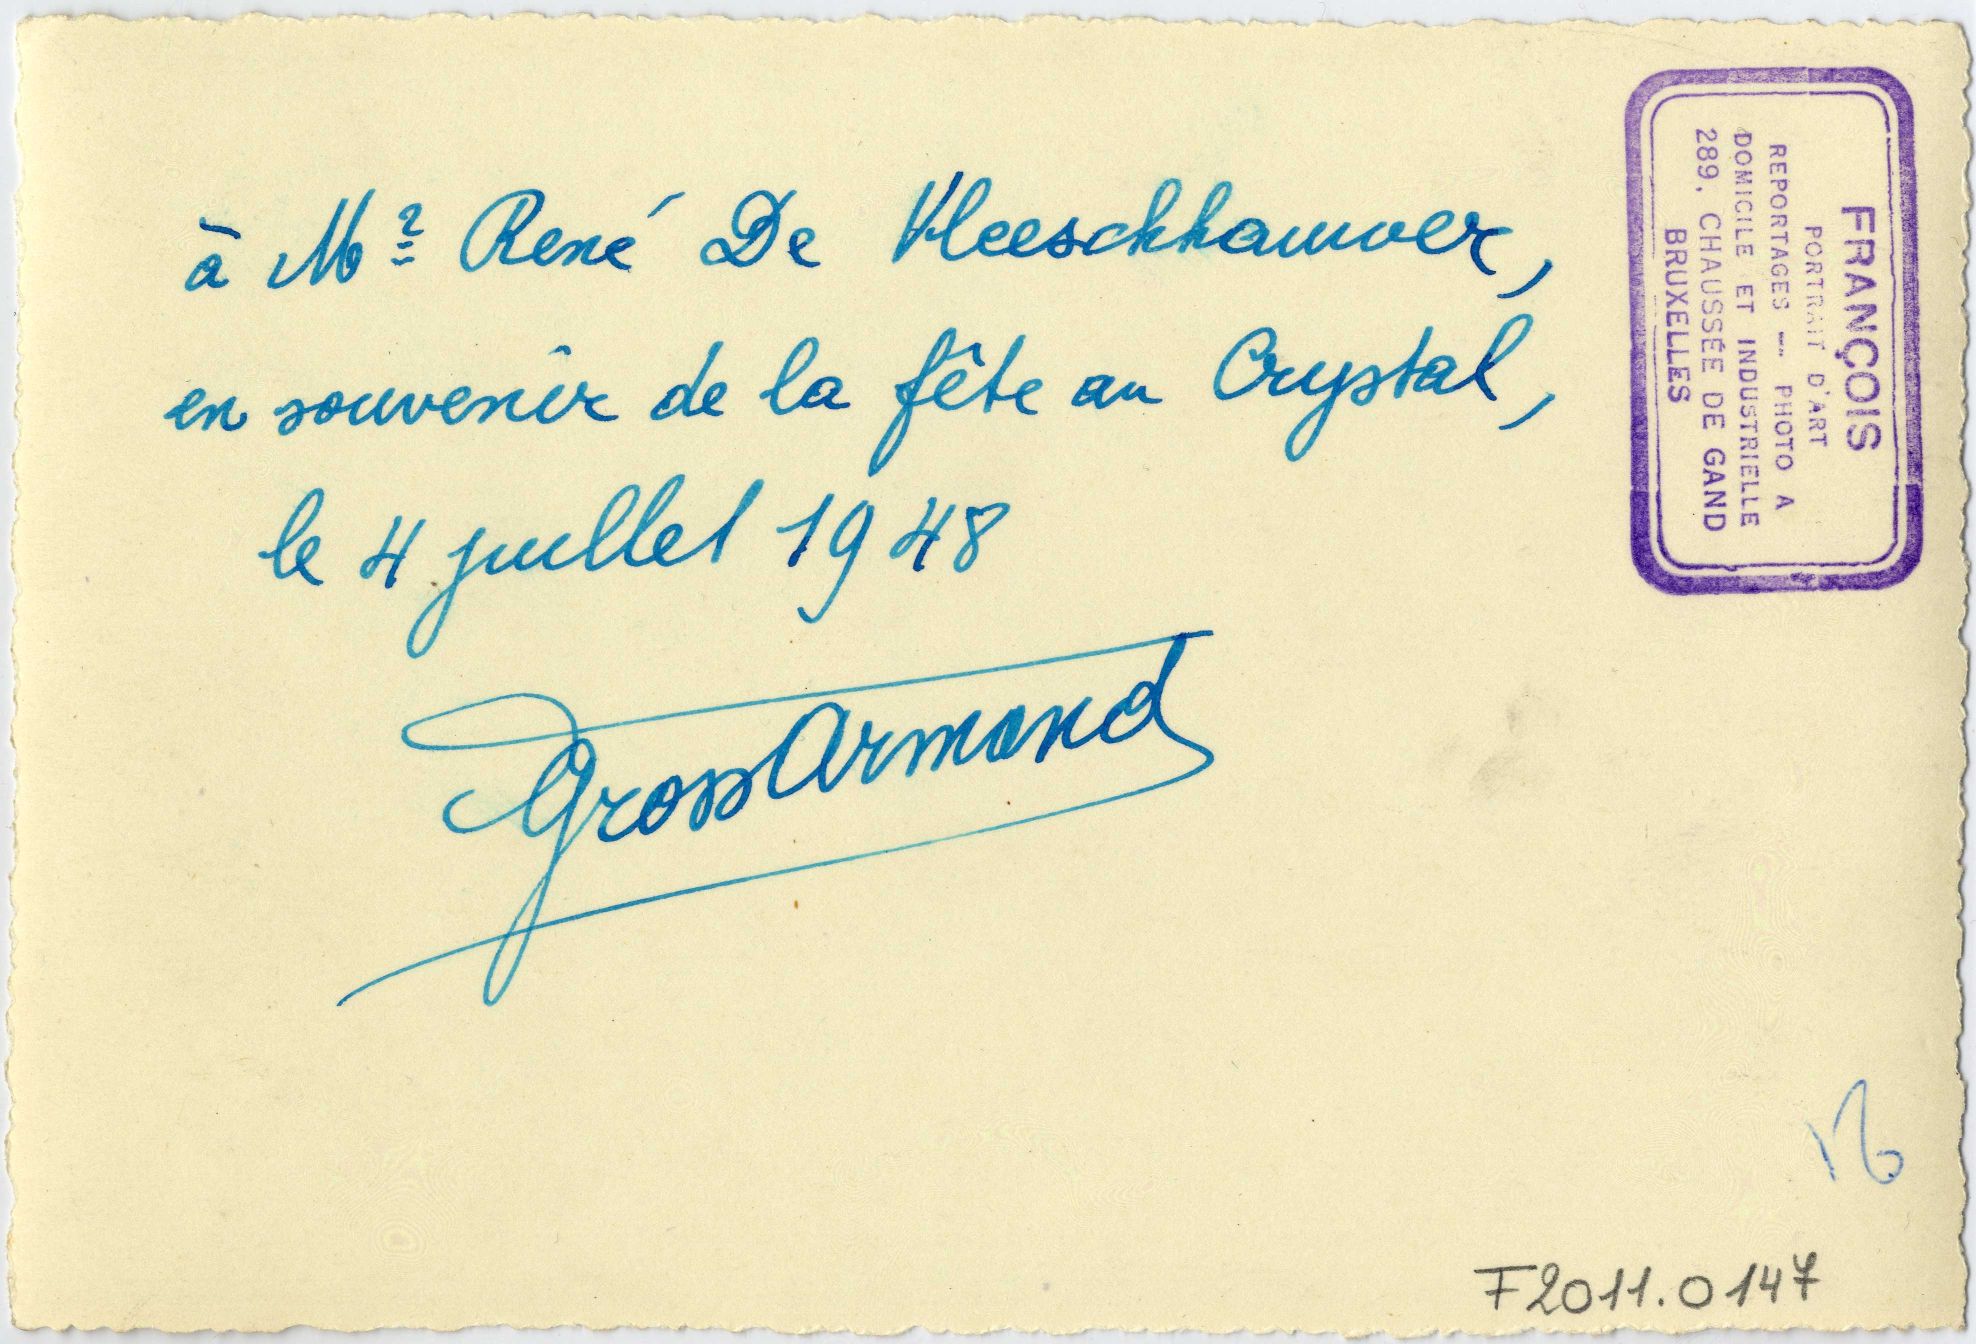 à Mr René De Kleeschhauwer,
en souvenir de la fête au Crystal,
le 4 juillet 1948
Gross Armand
FRANÇOIS
PORTRAIT D'ART
REPORTAGES -- PHOTO A
DOMICILE ET INDUSTRIELLE
289, CHAUSSÉE DE GAND
BRUXELLES
F2011.0147